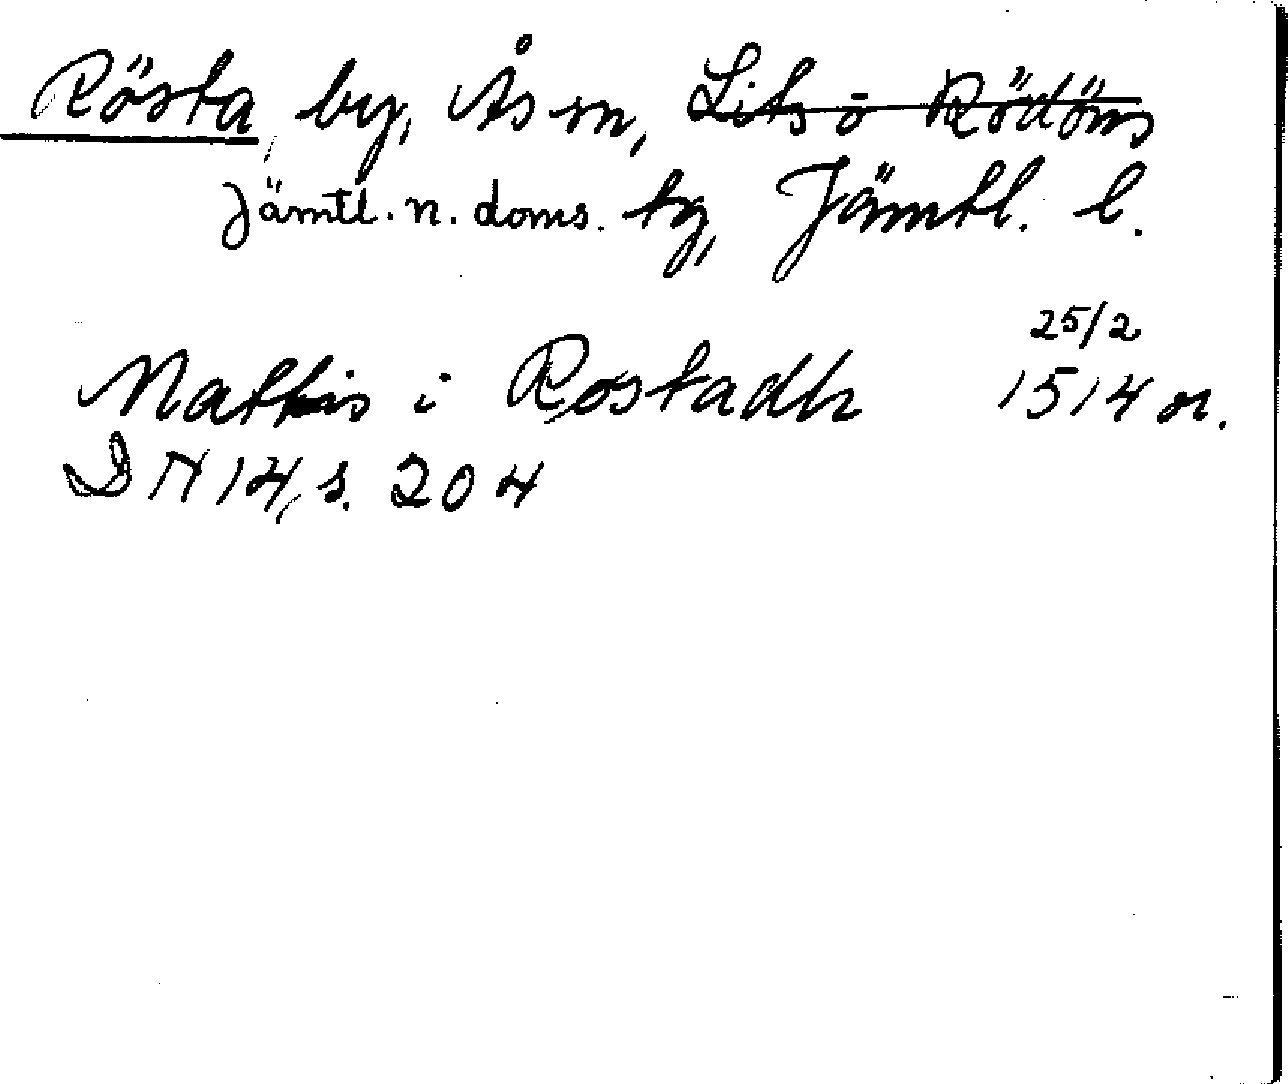 Rösta, by, Ås sn, Lits o Rödöns
Jämtl. n. doms. tg, Jämtl. l.
25/2
Mathis i Rostadh 1514 or.
DN 14, s. 204